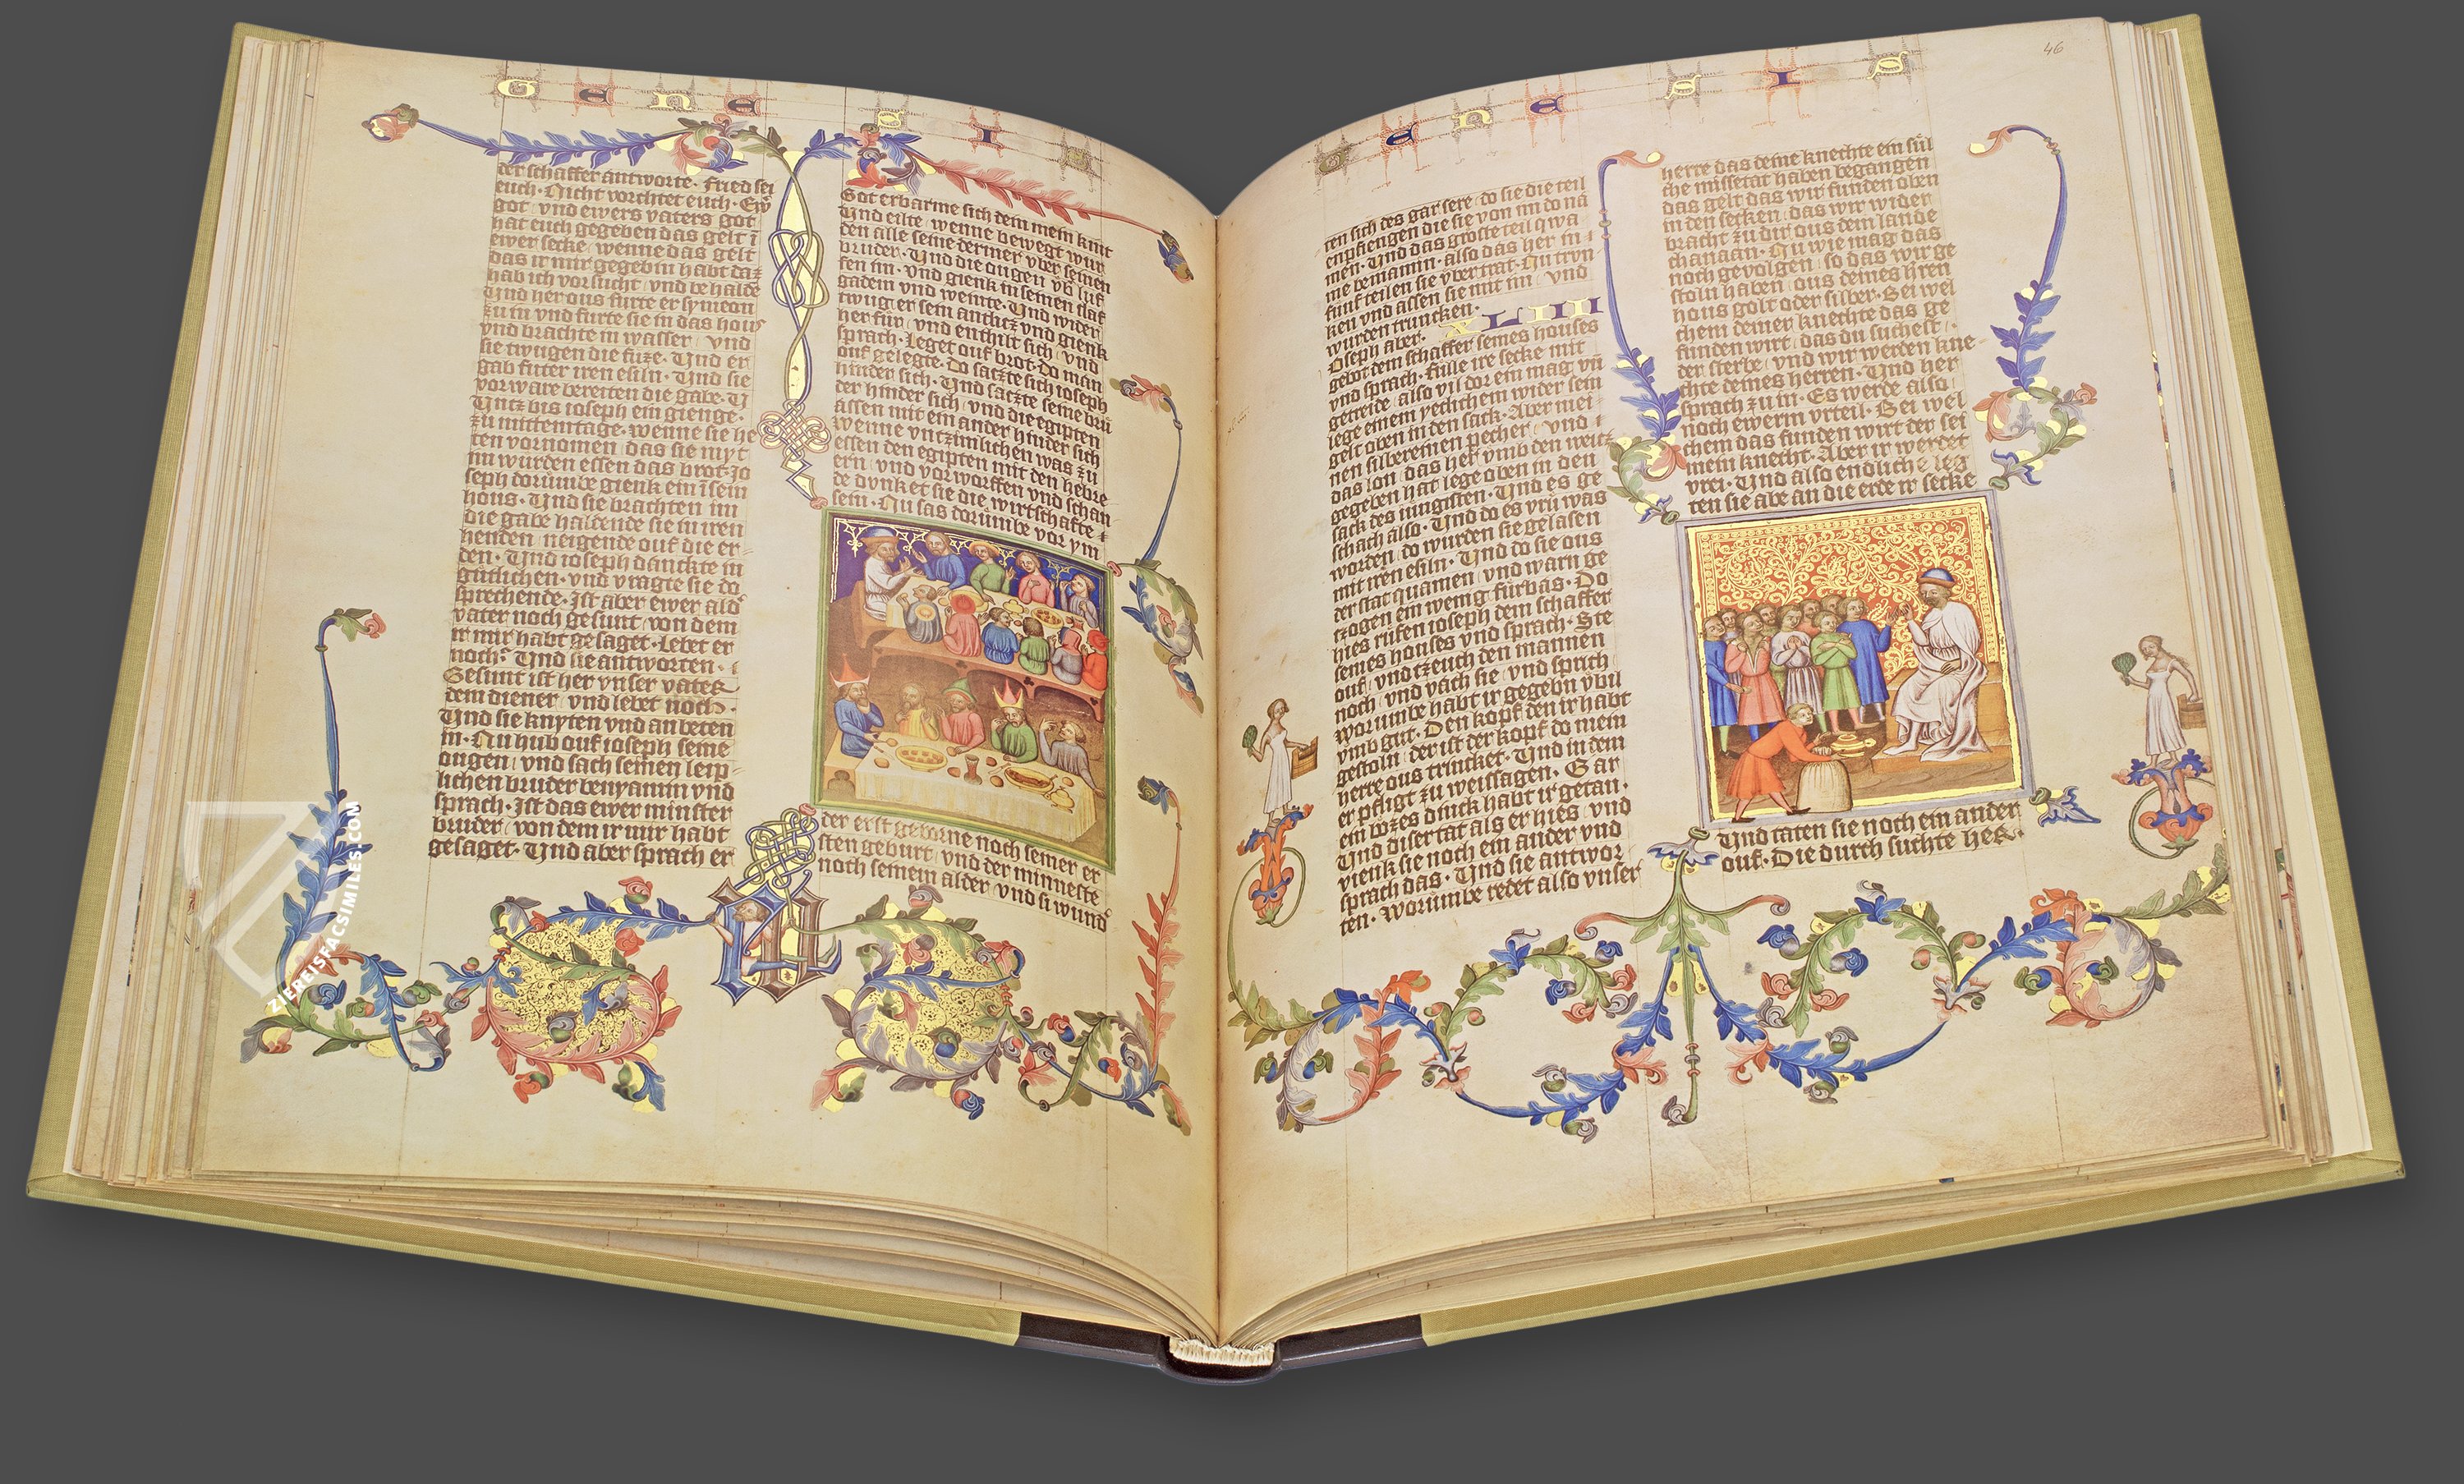 GENESIS
der schaffer antworte· Fried sei
euch· Nicht vorchtet euch· Ewer
got vnd ewers vaters got
hat euch gegeben das gelt ī
ewer secke wenne das gelt
das ir mir gegebin habt daz
hab ich vorsucht vnd behalde
Und her ous furte er symeon
zu in vnd furte sie in das hous
vnd brachte in wasser vnd
sie twugen die fuze· Und er
gab futer iren esiln· Und sie
vorware bereiten die gabe· U
Untz bis ioseph ein gienge·
zu mittemtage· wenne sie he
ten vornomen das sie myt
im wurden essen das brot· Jo
seph dorumbe gienk ein ī sein
hous· Und sie brachten im
die gabe haldende sie in iren
henden neigende ouf die er
den· Und ioseph danckte in
gutlichen· vnd vragte sie do
sprechende· Ist aber ewer ald
vater noch gesunt von dem
ir mir habt gesaget· Lebet er
noch· Und sie antworten·
Gesunt ist her vnser vater
dem diener vnd lebet noch·
Und sie knyten vnd an beten
in· Nu hub ouf ioseph seine
ougen vnd sach seinen leip
lichen bruder benyamin vnd
sprach· Ist das ewer minster
bruder von dem ir mir habt
gesaget· Und aber sprach er
Got erbarme sich dein mein kint
Und eilte wenne bewegt wur
den alle seine dermer vber seinen
bruder· Und die ougen vb luf
fen im· vnd gienk in seinen slaf
gadem vnd weinte· Und wider
twug er sein antlitz vnd gienk
her fur vnd enthilt sich vnd
sprach· Leget ouf brot· Do man
ouf gelegte· Do satzte sich ioseph
hinder sich· Und satzte seine bru
der hinder sich vnd die egipten
assen mit ein ander hinder sich
wenne vntzimlichen was zu
essen den egipten mit den hebre
ern vnd vorworffen vnd schan
de dunket sie die wirtschafte
sein· Nu sas dorumbe vor ym
der erst geborne noch seiner er
sten geburt vnd der minneste
noch seinem alder vnd si wund
GENESIS
46
ten sich des gar sere do sie die teil
enpfiengen die sie von im do na
men· Und das groste teil qwa
me beniamin· also das her in
funf teilen sie vbertrat· Nu trun
ken vnd assen sie mit im vnd
wurden truncken·
XLIIII
Joseph aber·
gebot dem schaffer seines houses
vnd sprach· Fulle ire secke mit
getreide also vil dor ein mag vn
lege einem yetlichem wider sein
gelt oben in den sack· Aber mei
nen silbereinen pecher vnd
das lon das her vmb den weitz
gegeben hat lege oben in den
sack des iungisten· Und es ge
schach also· Und do es vru was
worden do wurden sie gelasen
mit iren esiln· Und do sie ous
der stat quamen vnd warn ge
czogen ein wenig furbas· Do
hies rufen ioseph dem schaffer
seines houses vnd sprach· Ste
ouf vnd tzeuch den mannen
noch vnd vach sie vnd sprich
worumbe habt ir gegebn vbil
vmb gut· Den kopf den ir habt
gestoln der ist der kopf do mein
herre ous trincket· Und in dem
er pfligt zu weissagen· Gar
ein bozes dinck habt ir getan·
Und diser tat als er hies vnd
vienk sie noch ein ander vnd
sprach das· Und sie antwor
ten· Worumbe redet also vnser
herre das deine knechte ein sul
che missetat haben begangen
das gelt das wir funden oben
in den secken das wir wider
bracht zu dir ous dem lande
chanaan· Nu wie mag das
noch gevolgen so das wir ge
stoln haben ous deines hren
hous golt oder silber· Bei wel
chem deiner knechte das ge
funden wirt das du suchest·
der sterbe vnd wir werden kne
chte deines herren· Und her
sprach zu in· Es werde also
noch ewerm vrteil· Bei wel
chem das funden wirt der sei
mein knecht· Aber ir werdet
vrei· Und also endlich leg
ten sie abe an die erde ir secke
Und taten sie noch ein ander
ouf· Die durch suchte her
ZIEREISFACSIMILES.COM